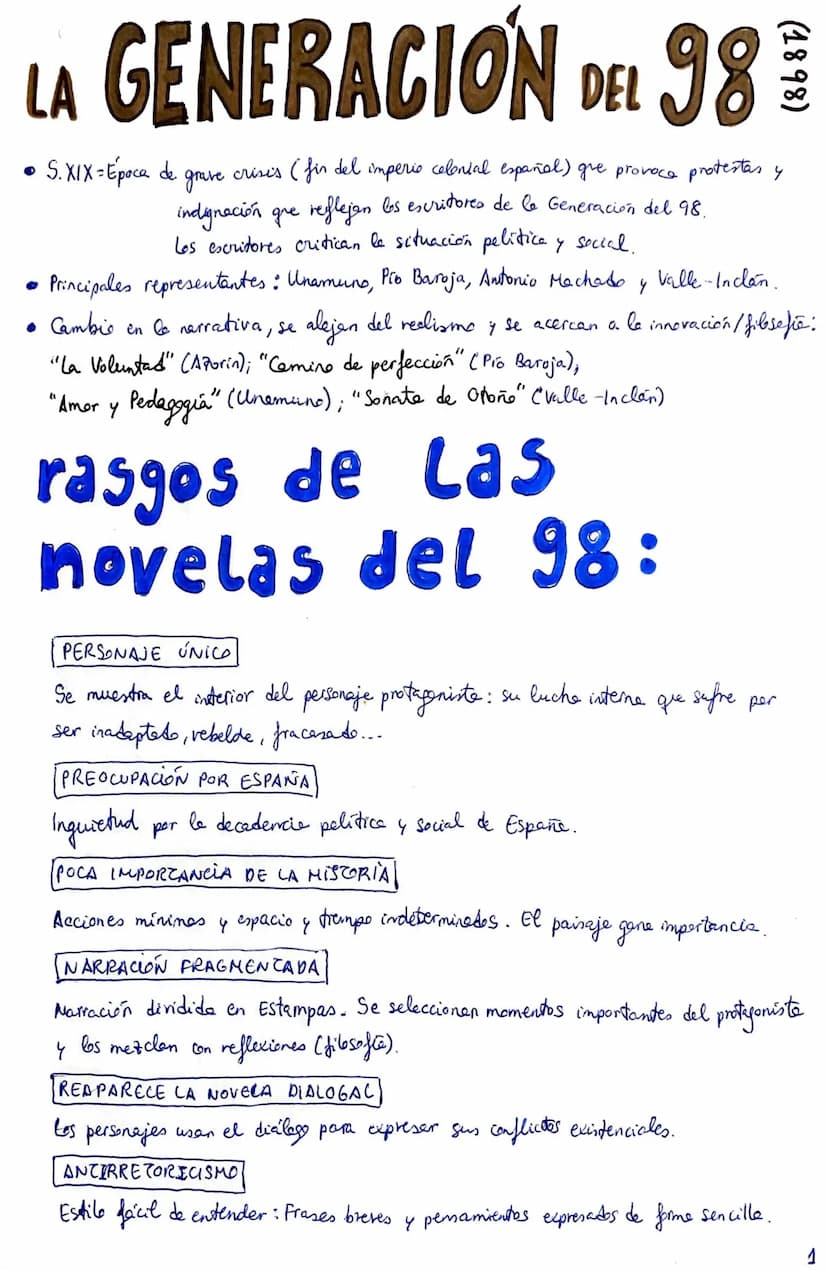 LA GENERACIÓN DEL 98 (1898)
• S.XIX=Época de grave crisis (fin del imperio colonial español) que provoca protestas y
indignación que reflejan los escritores de la Generación del 98.
Los escritores critican la situación política y social.
• Principales representantes: Unamuno, Pío Baroja, Antonio Machado y Valle-Inclán.
• Cambio en la narrativa, se alejan del realismo y se acercan a la innovación/filosofía:
"La Voluntad" (Azorín); "Camino de perfección" (Pío Baroja),
"Amor y Pedagogía" (Unamuno); "Sonata de Otoño" (Valle-Inclán)
rasgos de las
novelas del 98:
PERSONAJE ÚNICO
Se muestra el interior del personaje protagonista: su lucha interna que sufre por
ser inadaptado, rebelde, fracasado...
PREOCUPACIÓN POR ESPAÑA
Inquietud por la decadencia política y social de España.
POCA IMPORTANCIA DE LA HISTORIA
Acciones mínimas y espacio y tiempo indeterminados. El paisaje gana importancia.
NARRACIÓN FRAGMENTADA
Narración dividida en Estampas. Se seleccionan momentos importantes del protagonista
y los mezclan con reflexiones (filosofía).
REAPARECE LA NOVELA DIALOGAL
Los personajes usan el diálogo para expresar sus conflictos existenciales.
ANTIRRETORICISMO
Estilo fácil de entender: Frases breves y pensamientos expresados de forma sencilla.
1